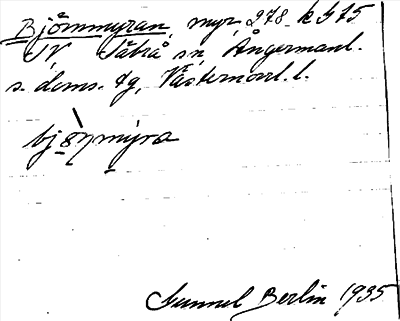 Björnmyran, myr, 278 k 475
IV Sätrå sn, Ångermanl.
s. doms. sg, Västernorrl. l.
bjö̀ṇmyra
Gunnel Berlin 1935